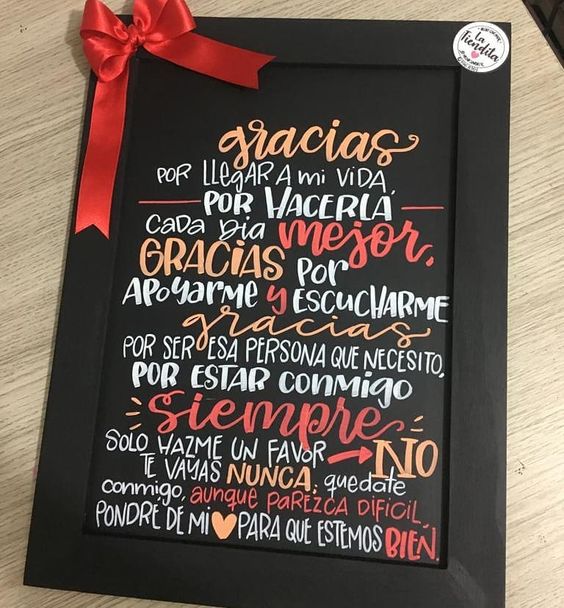 la
Tiendita
gracias
POR LLEGAR A mi VIDA,
POR HACERLA
CADA DIA mejor,
GRACIAS POR
APOYARME y ESCUCHARME
gracias
POR SER ESA PERSONA QUE NECESITO,
POR ESTAR conmigo
siempre
SOLO HAZME UN FAVOR → NO
TE VAYAS NUNCA; quedate
conmigo, aunque PAREZCA DIFICIL,
PONDRÉ DE MI PARA QUE ESTEMOS BIEN.